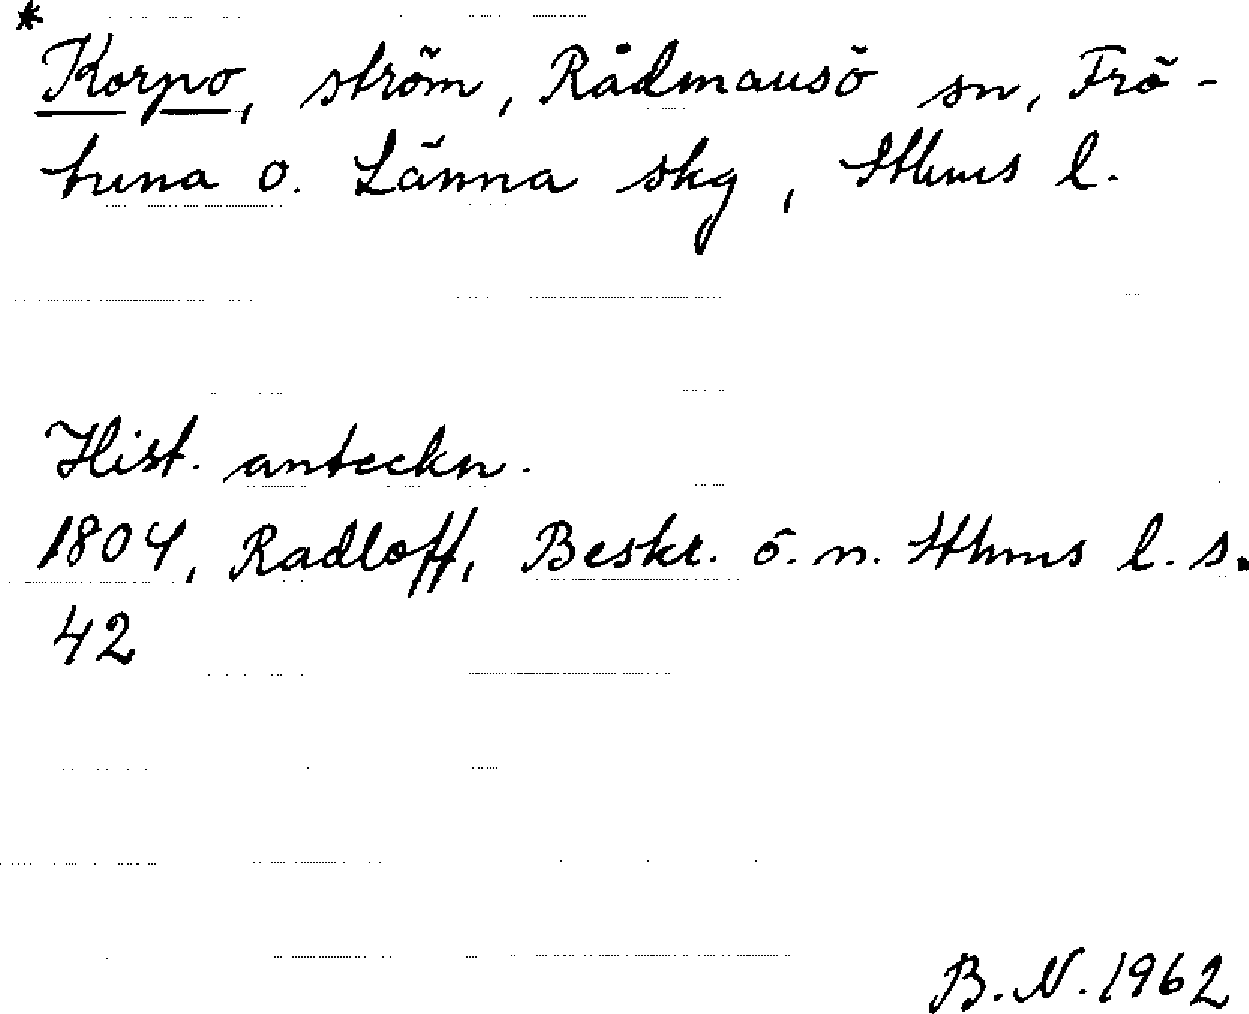 *
Korpo, ström, Rådmansö sn, Frö-
tuna o. Länna skg, Sthms l.
Hist. anteckn.
1804, Radloff, Beskr. ö. n. Sthms l. s.
42
B. N. 1962